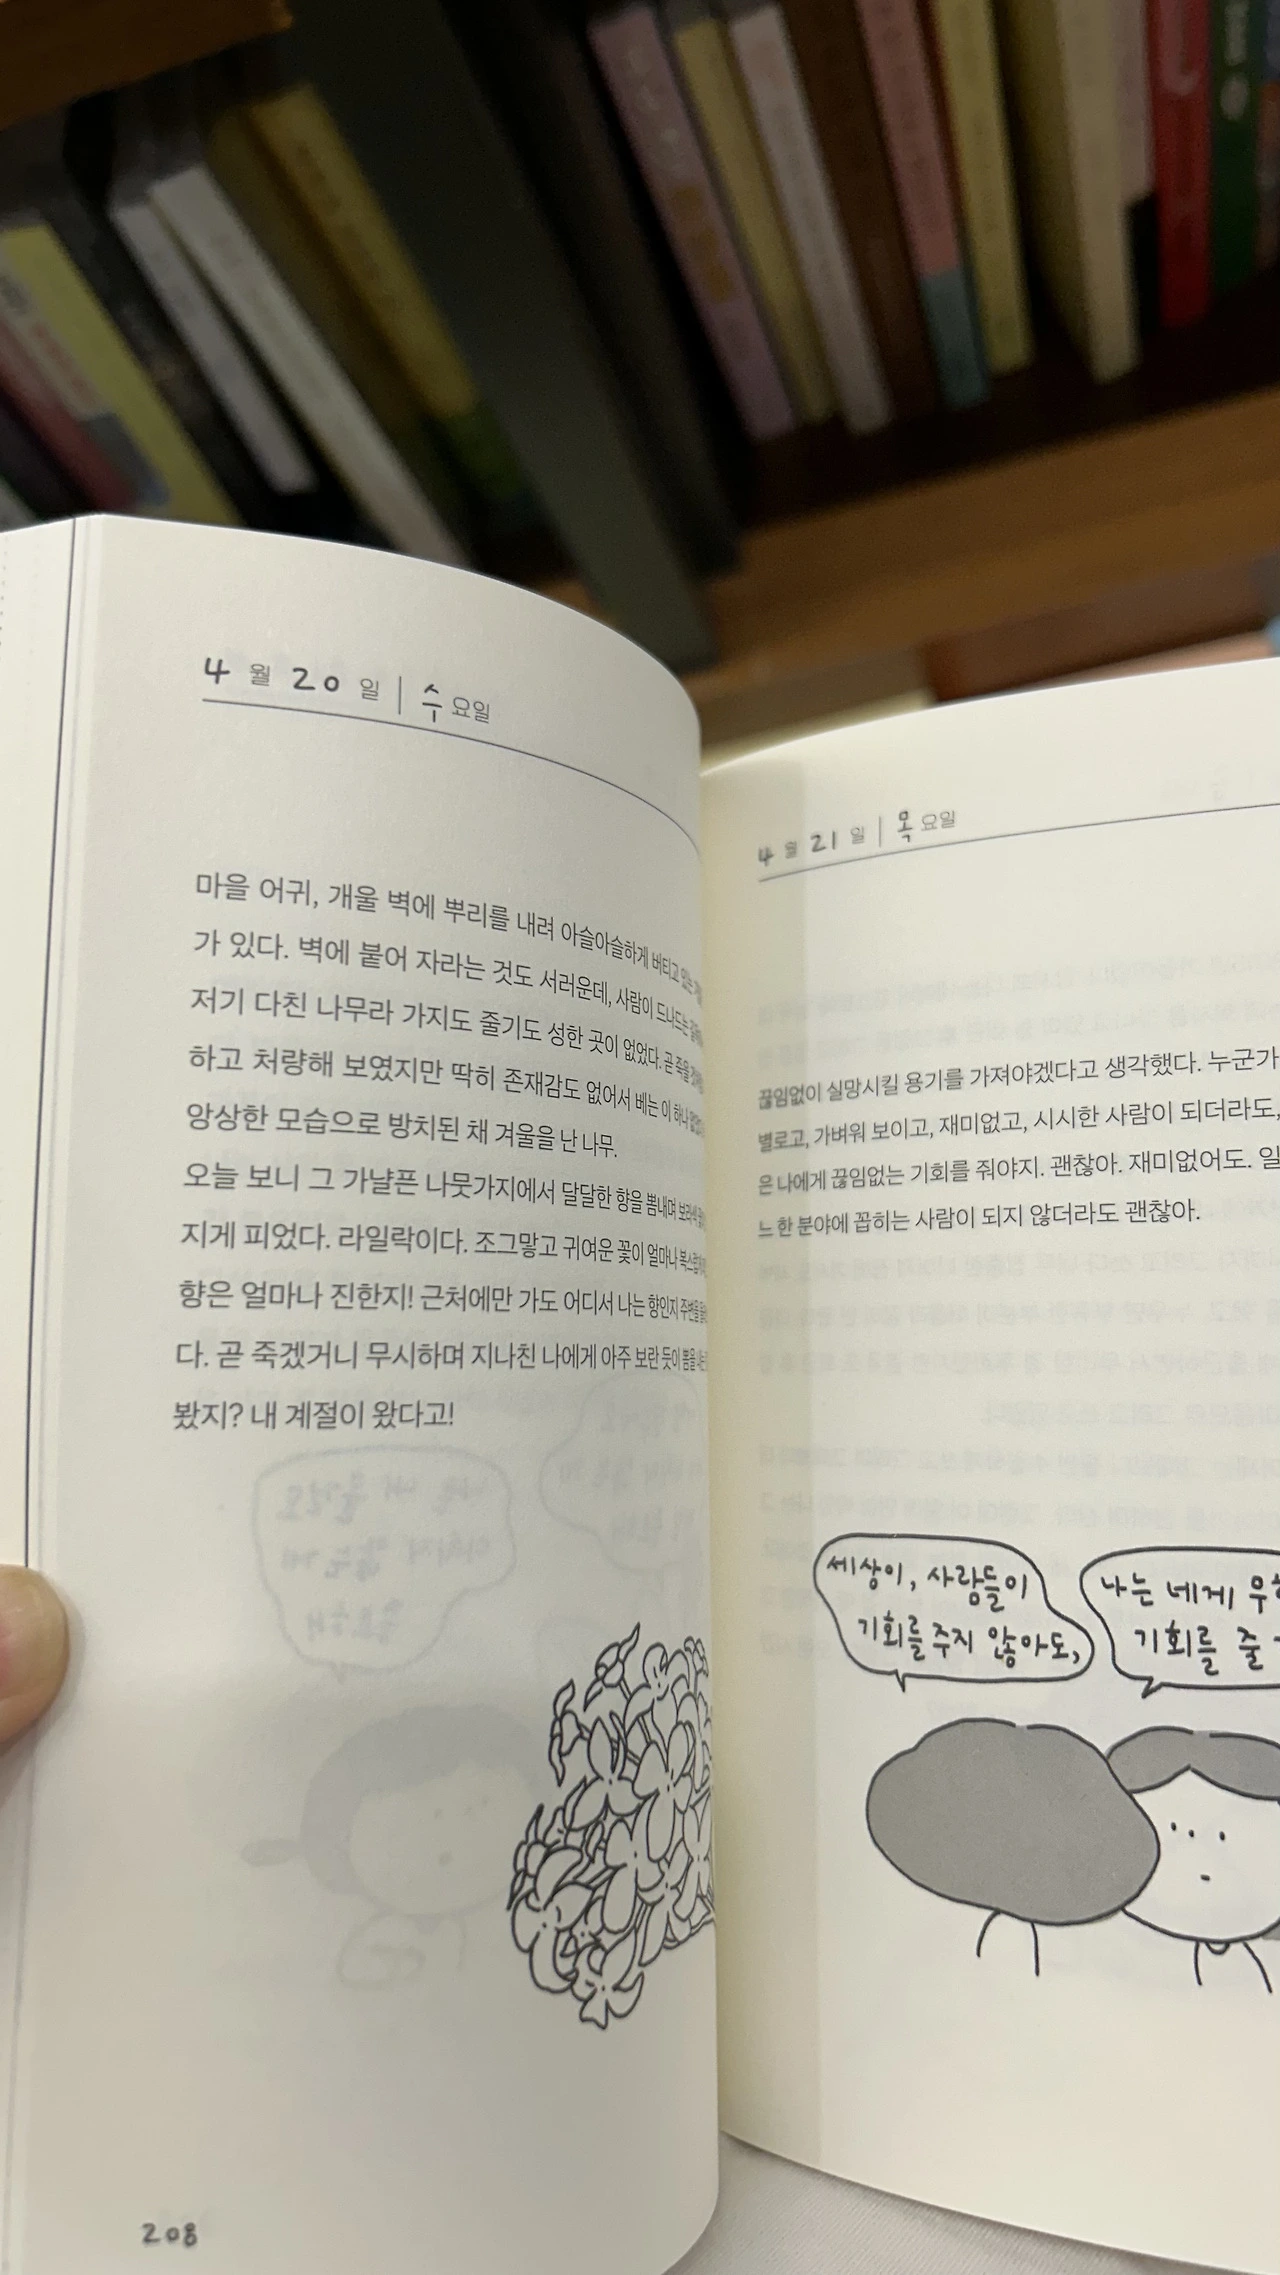 4월 20일 | 수요일
마을 어귀, 개울 벽에 뿌리를 내려 아슬아슬하게 버티고 있는
가 있다. 벽에 붙어 자라는 것도 서러운데, 사람이 드나드는
저기 다친 나무라 가지도 줄기도 성한 곳이 없었다. 곧 죽을
하고 처량해 보였지만 딱히 존재감도 없어서 베는 이 하나
앙상한 모습으로 방치된 채 겨울을 난 나무.
오늘 보니 그 가냘픈 나뭇가지에서 달달한 향을 뿜내며 보라색
지게 피었다. 라일락이다. 조그맣고 귀여운 꽃이 얼마나
향은 얼마나 진한지! 근처에만 가도 어디서 나는 향인지 주변을
다. 곧 죽겠거니 무시하며 지나친 나에게 아주 보란 듯이 뽐을
봤지? 내 계절이 왔다고!
208
4월 21일 | 목요일
끊임없이 실망시킬 용기를 가져야겠다고 생각했다. 누군가
별로고, 가벼워 보이고, 재미없고, 시시한 사람이 되더라도,
은 나에게 끊임없는 기회를 줘야지. 괜찮아. 재미없어도. 일
느 한 분야에 꼽히는 사람이 되지 않더라도 괜찮아.
세상이, 사람들이
기회를 주지 않아도,
나는 네게
기회를 줄